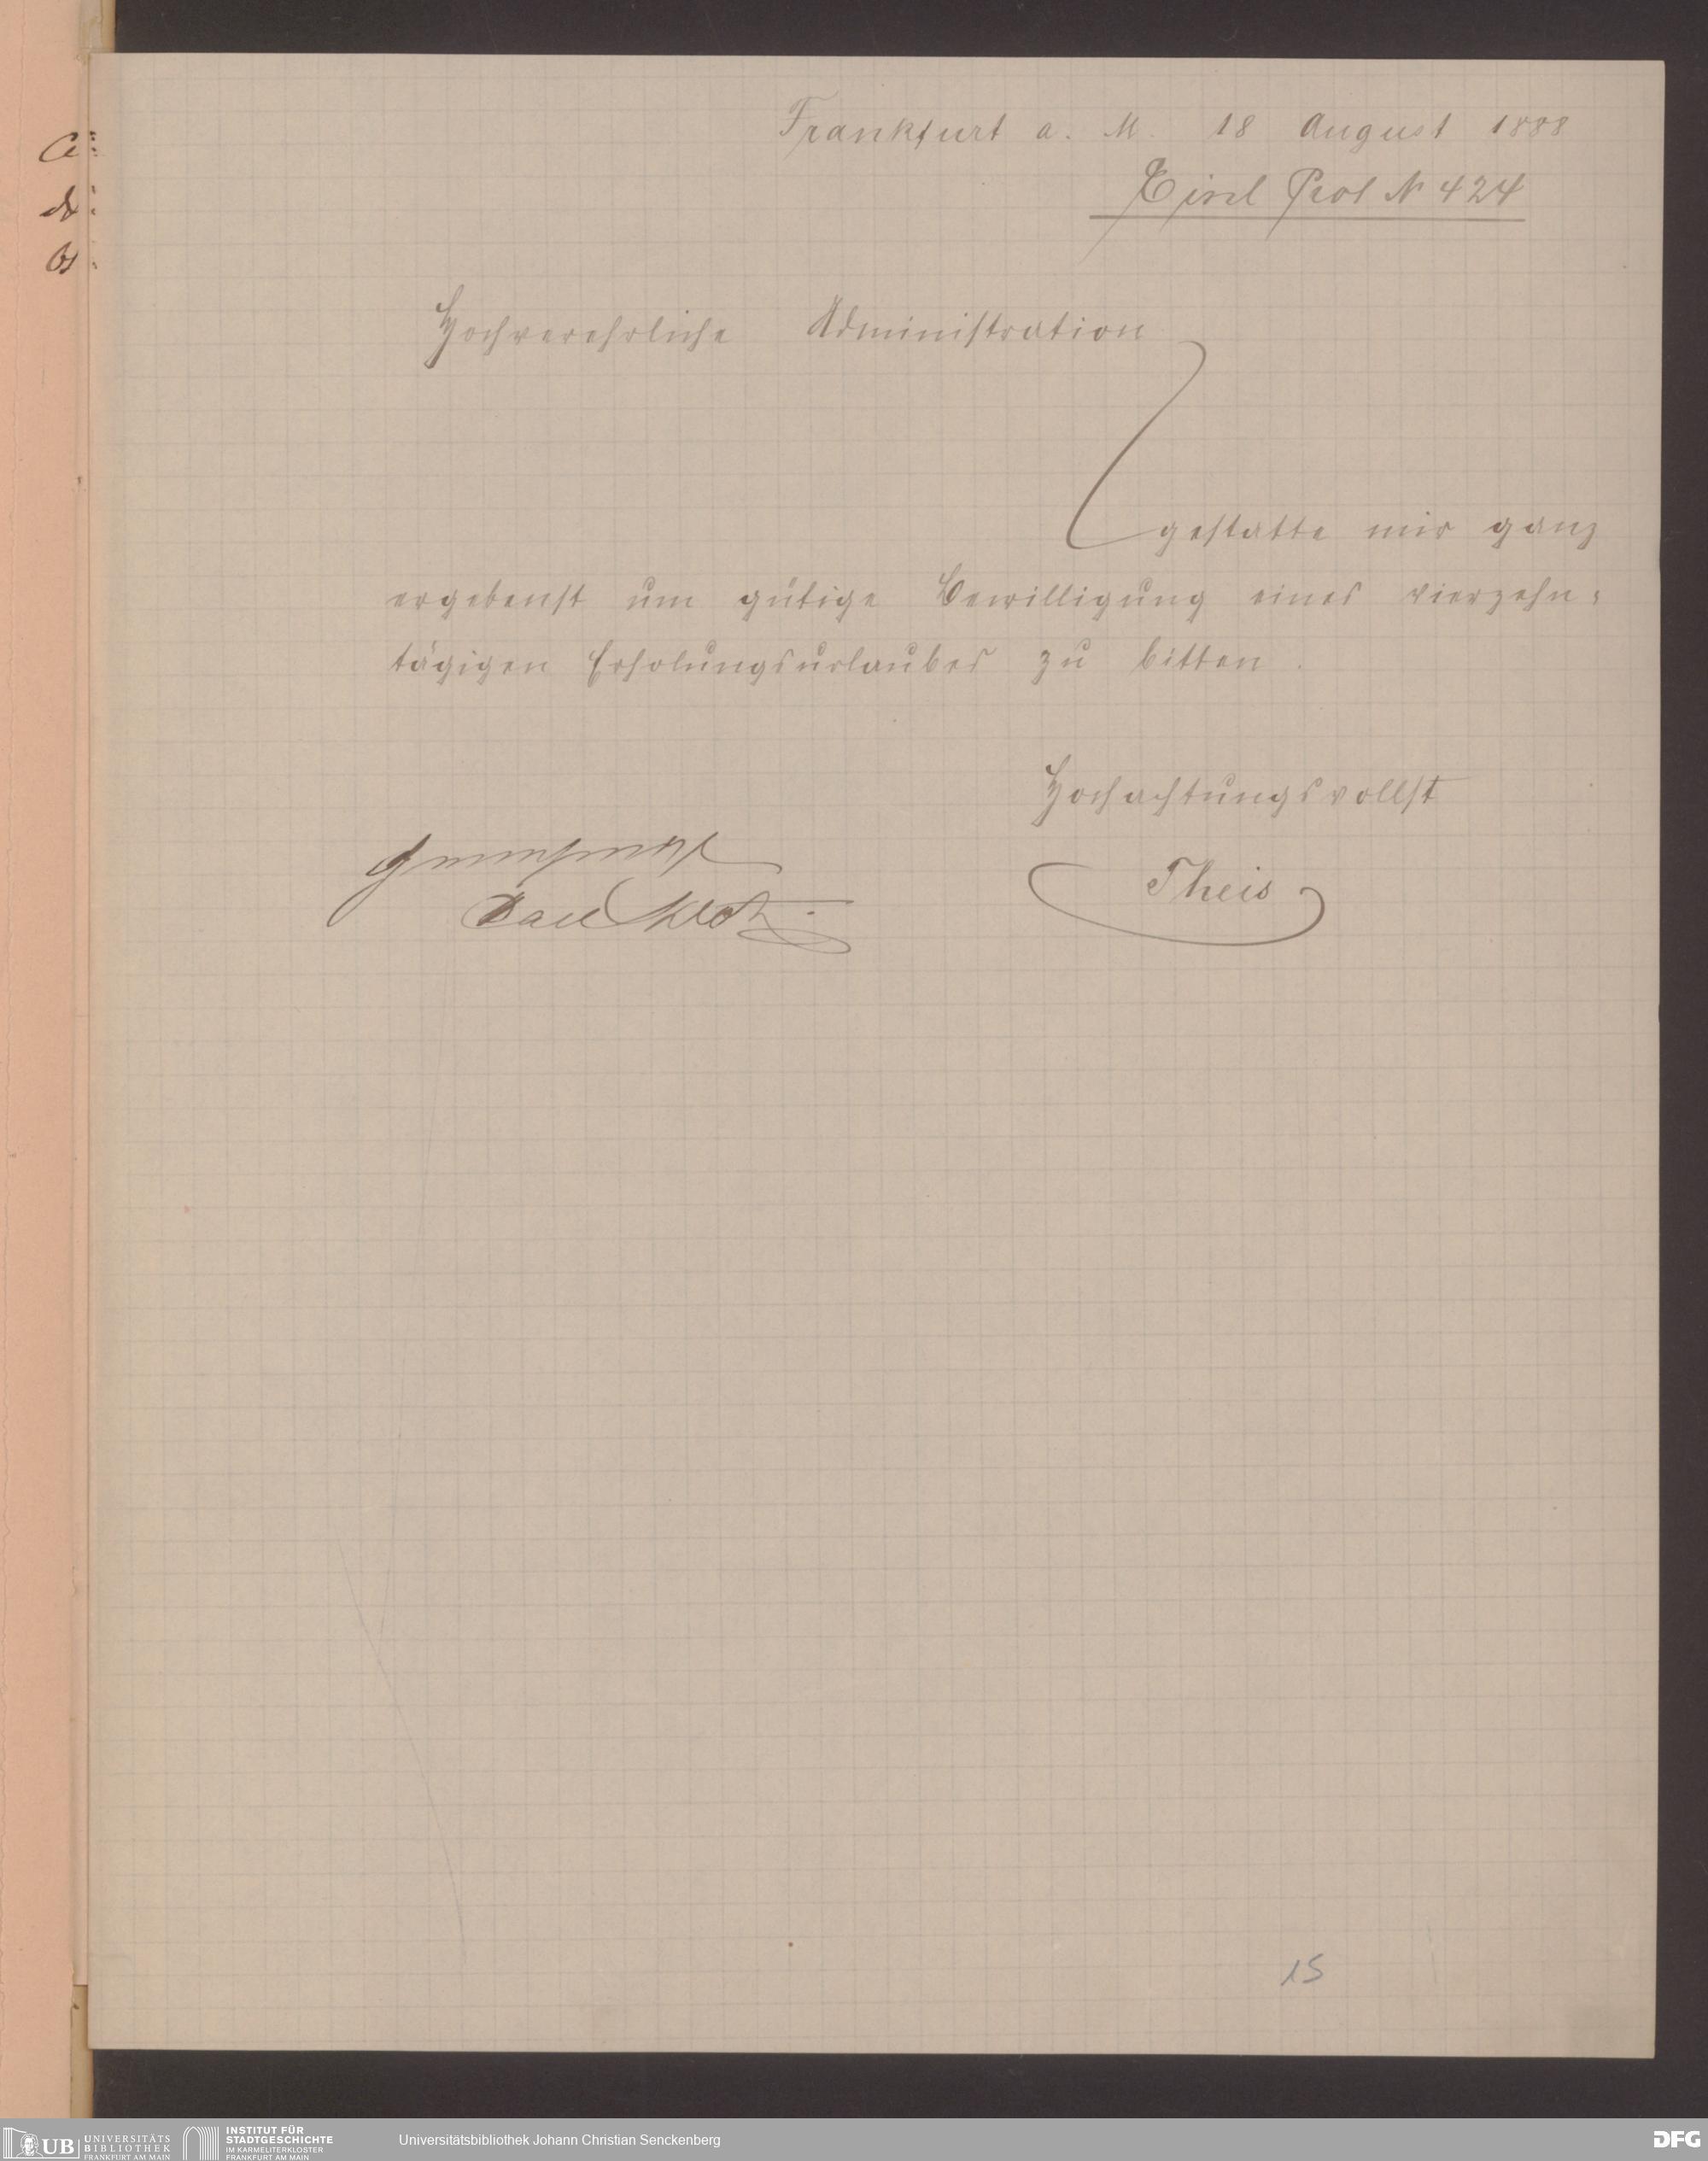 Frankfurt a. M. 18 August 1888
Prot N 424
Hochverehrliche Administration
gestatte mir ganz
ergebenst um gütige Bewilligung eines vierzehn=
tägigen Erholungsurlaubes zu bitten.
Hochachtungsvollst
genehmigt
Theis
Carl Klotz
15
UB UNIVERSITÄTS
BIBLIOTHEK
FRANKFURT AM MAIN
INSTITUT FÜR
STADTGESCHICHTE
IM KARMELITERKLOSTER
FRANKFURT AM MAIN
Universitätsbibliothek Johann Christian Senckenberg
DFG